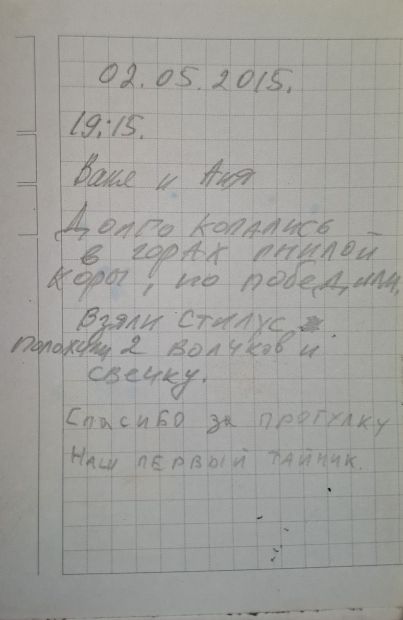 02.05.2015.
19:15.
Ваня и Аня
Долго копались
в горах гнилой
коры, но победили.
Взяли стилус,
положили 2 волчков и
свечку.
Спасибо за прогулку
Наш первый тайник.